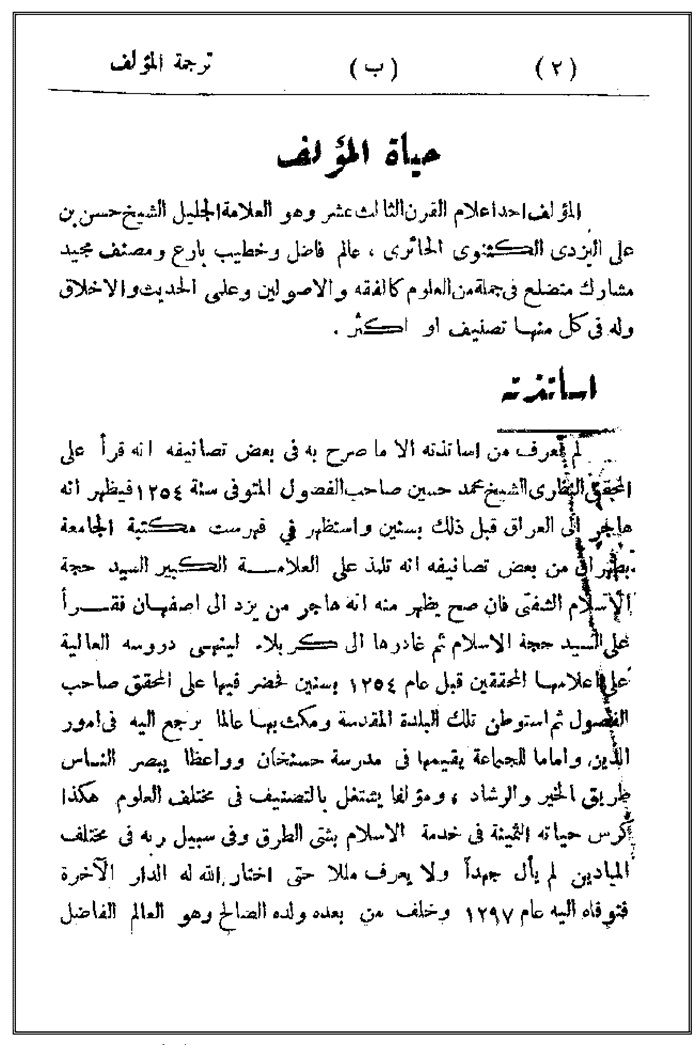 (٢) (ب) ترجمة المؤلف
حياة المؤلف
المؤلف احد اعلام القرن الثالث عشر وهو العلامة الجليل الشيخ حسن بن
على اليزدى الكثنوى الحائرى ، عالم فاضل وخطيب بارع ومصنف مجيد
مشارك متضلع فى جملة من العلوم كالفقه والاصولين وعلمى الحديث والاخلاق
وله فى كل منها تصنيف او اكثر .
اساتذته
لم نعرف من اساتذته الا ما صرح به فى بعض تصانيفه انه قرأ على
المحقق الشيخ محمد حسين صاحب الفضول المتوفى سنة ١٢٥٤ فيظهر انه
هاجر الى العراق قبل ذلك بسنين واستظهر في فهرست مكتبة الجامعة
بطهران من بعض تصانيفه انه تلمذ على العلامــة الكبير السيد حجة
الاسلام الشفتى فان صح يظهر منه انه هاجر من يزد الى اصفهان فقــرأ
على السيد حجة الاسلام ثم غادرها الى كربلاء لينهى دروسه العالية
على اعلامها المحققين قبل عام ١٢٥٤ بسنين فحضر فيها على المحقق صاحب
الفصول ثم استوطن تلك البلدة المقدسة ومكث بها عالما يرجع اليه فى امور
الدين، واماما للجماعة يقيمها فى مدرسة حسنخان وواعظا يبصر النــاس
طريق الخير والرشاد ، ومؤلفا يشتغل بالتصنيف فى مختلف العلوم هكذا
كرس حياته الثمينة فى خدمة الاسلام بشتى الطرق وفى سبيل ربه فى مختلف
الميادين لم يأل جهداً ولا يعرف مللا حتى اختار الله له الدار الآخرة
فتوفاه اليه عام ١٢٩٧ وخلف من بعده ولده الصالح وهو العالم الفاضل